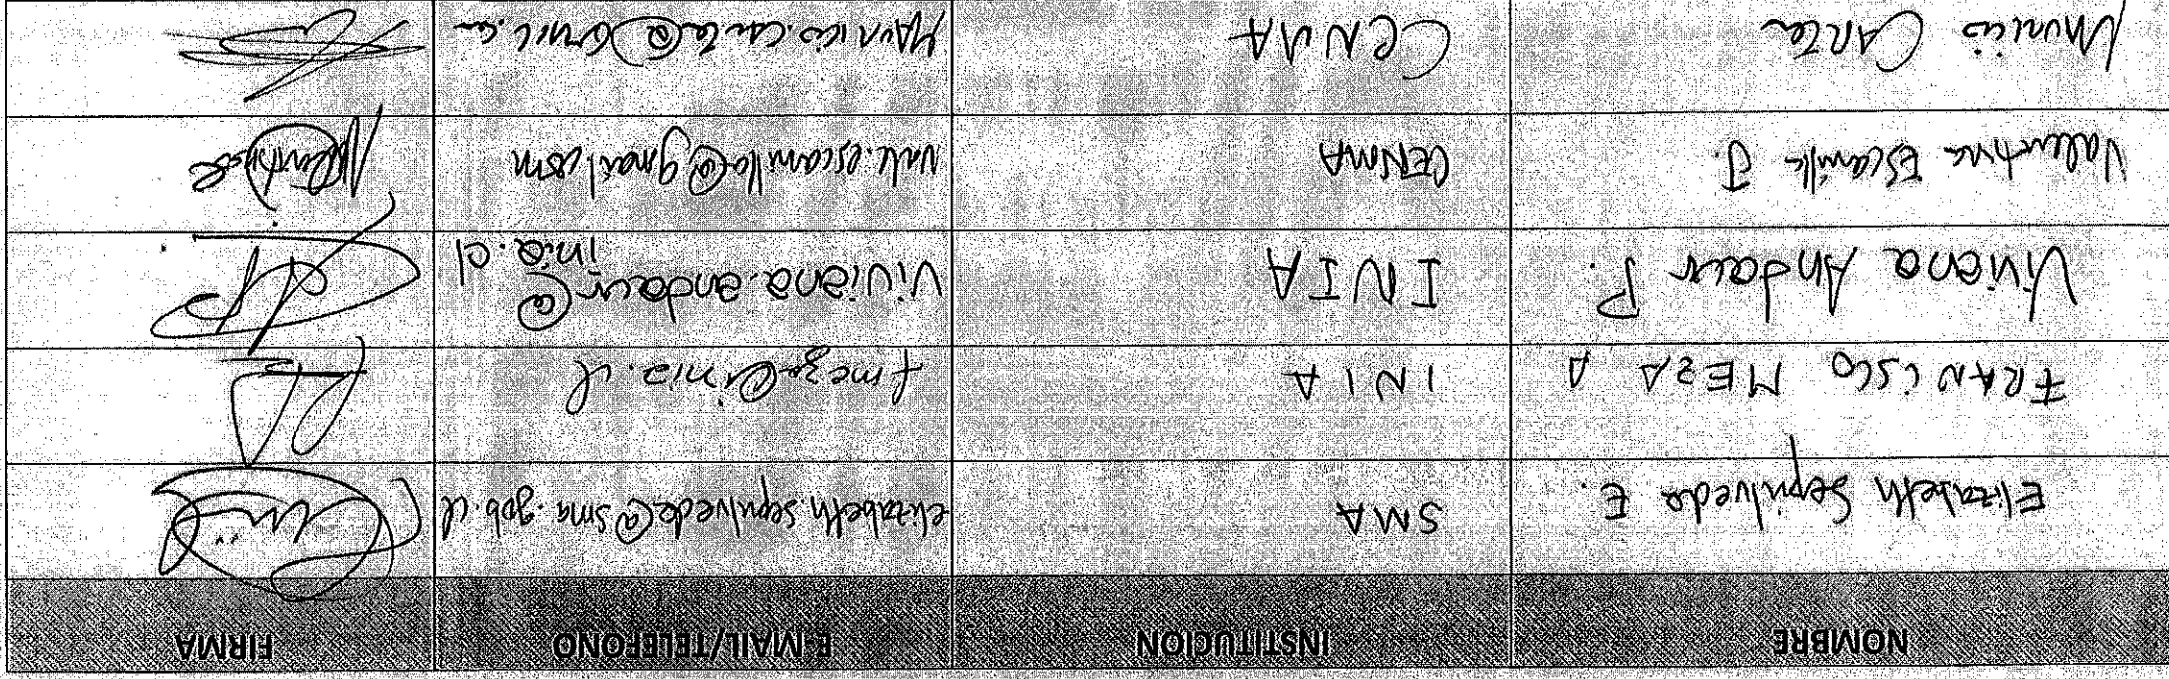 NOMBRE INSTITUCION E-MAIL/TELEFONO FIRMA
Elizabeth Sepúlveda E. SMA elizabeth.sepulveda@sma.gob.cl
FRANCISCO MEZA A INIA fmeza@inia.cl
Viviana Andaur P. INIA viviana.andaur@
inia.cl
Valentina Escamilla J. CENMA vale.escamilla@gmail.com
CENMA